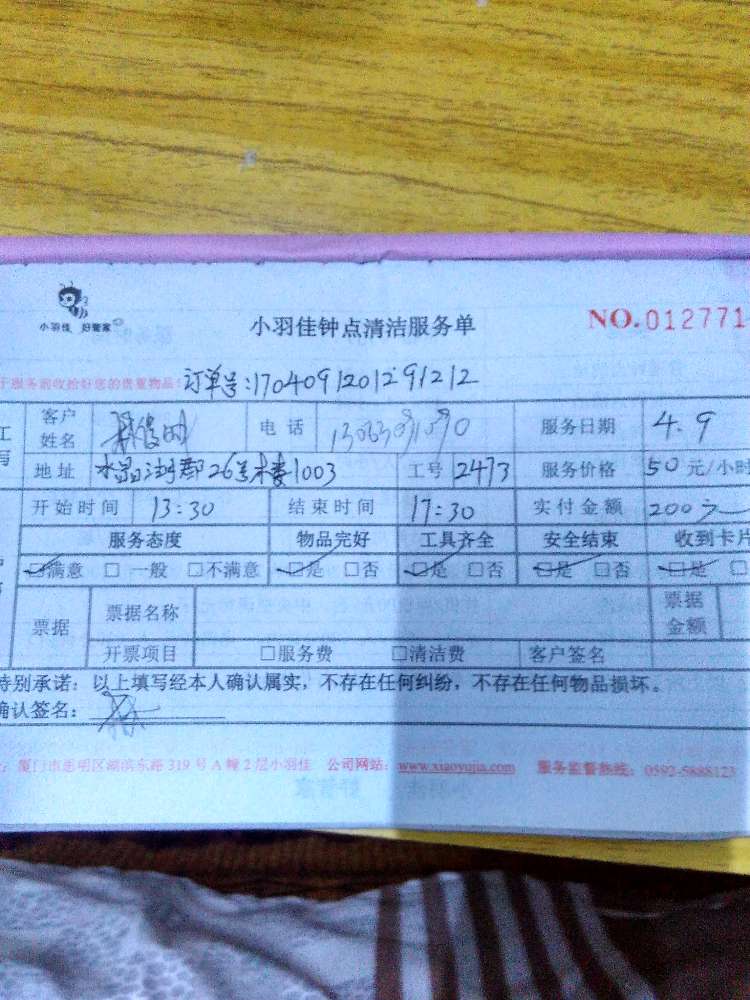 小羽佳 好管家
小羽佳钟点清洁服务单
NO.012771
于服务前收拾好您的贵重物品!
订单号:170409120129 1212
客户姓名 电话 服务日期 4.9
地址 水晶湖郡26号楼1003 工号 2473 服务价格 50元/小时
开始时间 13:30 结束时间 17:30 实付金额 200元
服务态度 物品完好 工具齐全 安全结束 收到卡片
☑满意 □一般 □不满意 ☑是 □否 ☑是 □否 ☑是 □否 ☑是 □
票据 票据名称 票据金额
开票项目 □服务费 □清洁费 客户签名
特别承诺:以上填写经本人确认属实,不存在任何纠纷,不存在任何物品损坏。
确认签名:
厦门市思明区湖滨东路319号A幢2层小羽佳 公司网站:www.xiaoyujia.com 服务监督热线:0592-5888123